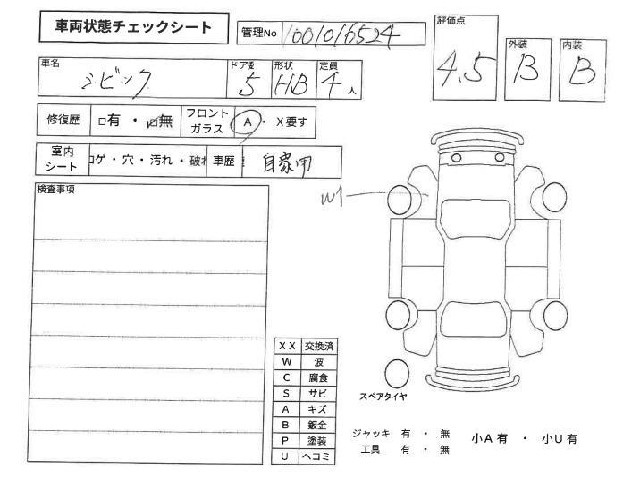 車両状態チェックシート
管理No 1001016524
評価点 4.5
外装 B
内装 B
車名 シビック
ドア数 5
形状 HB
定員 4人
修復歴 □有・☑無
フロントガラス A・X要す
室内シート コゲ・穴・汚れ・破れ
車歴 自家用
検査事項
W1
XX 交換済
W 波
C 腐食
S サビ
A キズ
B 鈑金
P 塗装
U ヘコミ
スペアタイヤ
ジャッキ 有・無
工具 有・無
小A有・小U有